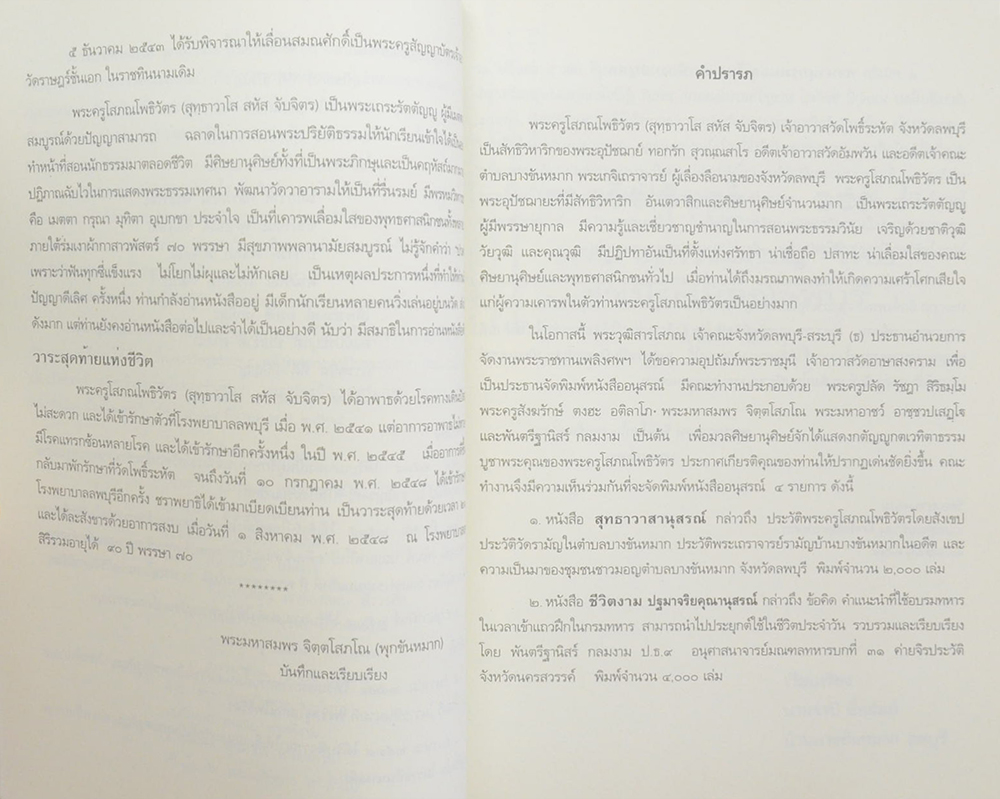 ๕ ธันวาคม ๒๕๔๓ ได้รับพิจารณาให้เลื่อนสมณศักดิ์เป็นพระครูสัญญาบัตร
วัดราษฎร์ชั้นเอก ในราชทินนามเดิม
พระครูโสภณโพธิวัตร (สุทฺธาวาโส สหัส จับจิตร) เป็นพระเถระรัตตัญญู
สมบูรณ์ด้วยปัญญาสามารถ ฉลาดในการสอนพระปริยัติธรรมให้นักเรียนเข้าใจได้
ทำหน้าที่สอนนักธรรมมาตลอดชีวิต มีศิษยานุศิษย์ทั้งที่เป็นพระภิกษุและเป็นคฤหัสถ์
ปฏิภาณฉับไวในการแสดงพระธรรมเทศนา พัฒนาวัดวาอารามให้เป็นที่รื่นรมย์
คือ เมตตา กรุณา มุทิตา อุเบกขา ประจำใจ เป็นที่เคารพเลื่อมใสของพุทธศาสนิกชน
ภายใต้ร่มเงาผ้ากาสาวพัสตร์ ๗๐ พรรษา มีสุขภาพพลานามัยสมบูรณ์ ไม่รู้จักคำว่า
เพราะว่าฟันทุกซี่แข็งแรง ไม่โยกไม่ผุและไม่หักเลย เป็นเหตุผลประการหนึ่งที่ทำให้
ปัญญาดีเลิศ ครั้งหนึ่ง ท่านกำลังอ่านหนังสืออยู่ มีเด็กนักเรียนหลายคนวิ่งเล่นอยู่บน
ดังมาก แต่ท่านยังคงอ่านหนังสือต่อไปและจำได้เป็นอย่างดี นับว่า มีสมาธิในการอ่าน
วาระสุดท้ายแห่งชีวิต
พระครูโสภณโพธิวัตร (สุทฺธาวาโส สหัส จับจิตร) ได้อาพาธด้วยโรค
ไม่สะดวก และได้เข้ารักษาตัวที่โรงพยาบาลลพบุรี เมื่อ พ.ศ. ๒๕๔๑ แต่อาการอาพาธ
มีโรคแทรกซ้อนหลายโรค และได้เข้ารักษาอีกครั้งหนึ่ง ในปี พ.ศ. ๒๕๔๕ เมื่ออาการ
กลับมาพักรักษาที่วัดโพธิ์ระหัต จนถึงวันที่ ๑๐ กรกฎาคม พ.ศ. ๒๕๔๘ ได้เข้า
โรงพยาบาลลพบุรีอีกครั้ง ชราพยาธิได้เข้ามาเบียดเบียนท่าน เป็นวาระสุดท้ายด้วยเวลา
และได้ละสังขารด้วยอาการสงบ เมื่อวันที่ ๑ สิงหาคม พ.ศ. ๒๕๔๘ ณ โรงพยาบาล
สิริรวมอายุได้ ๙๐ ปี พรรษา ๗๐
********
พระมหาสมพร จิตฺตโสภโณ (พุกชันหมาก)
บันทึกและเรียบเรียง
คำปรารภ
พระครูโสภณโพธิวัตร (สุทฺธาวาโส สหัส จับจิตร) เจ้าอาวาสวัดโพธิ์ระหัต จังหวัดลพบุรี
เป็นสัทธิวิหาริกของพระอุปัชฌาย์ ทอกรัก สุวณฺณสาโร อดีตเจ้าอาวาสวัดอัมพวัน และอดีตเจ้าคณะ
ตำบลบางขันหมาก พระเกจิเถราจารย์ ผู้เลื่องลือนามของจังหวัดลพบุรี พระครูโสภณโพธิวัตร เป็น
พระอุปัชฌายะที่มีสัทธิวิหาริก อันเตวาสิกและศิษยานุศิษย์จำนวนมาก เป็นพระเถระรัตตัญญู
ผู้มีพรรษายุกาล มีความรู้และเชี่ยวชาญชำนาญในการสอนพระธรรมวินัย เจริญด้วยชาติวุฒิ
วัยวุฒิ และคุณวุฒิ มีปฏิปทาอันเป็นที่ตั้งแห่งศรัทธา น่าเชื่อถือ ปสาทะ น่าเลื่อมใสของคณะ
ศิษยานุศิษย์และพุทธศาสนิกชนทั่วไป เมื่อท่านได้ถึงมรณภาพลงทำให้เกิดความเศร้าโศกเสียใจ
แก่ผู้ความเคารพในตัวท่านพระครูโสภณโพธิวัตรเป็นอย่างมาก
ในโอกาสนี้ พระวุฒิสารโสภณ เจ้าคณะจังหวัดลพบุรี-สระบุรี (ธ) ประธานอำนวยการ
จัดงานพระราชทานเพลิงศพฯ ได้ขอความอุปถัมภ์พระราชมุนี เจ้าอาวาสวัดอาษาสงคราม เพื่อ
เป็นประธานจัดพิมพ์หนังสืออนุสรณ์ มีคณะทำงานประกอบด้วย พระครูปลัด รัชฎา สิริธมฺโม
พระครูสังฆรักษ์ ตงฮะ อติลาโภ พระมหาสมพร จิตฺตโสภโณ พระมหาอาชว์ อาชฺชวปเสฏฺโฐ
และพันตรีฐานิสร์ กลมงาม เป็นต้น เพื่อมวลศิษยานุศิษย์จักได้แสดงกตัญญูกตเวทิตาธรรม
บูชาพระคุณของพระครูโสภณโพธิวัตร ประกาศเกียรติคุณของท่านให้ปรากฏเด่นชัดยิ่งขึ้น คณะ
ทำงานจึงมีความเห็นร่วมกันที่จะจัดพิมพ์หนังสืออนุสรณ์ ๔ รายการ ดังนี้
๑. หนังสือ สุทธาวาสานุสรณ์ กล่าวถึง ประวัติพระครูโสภณโพธิวัตรโดยสังเขป
ประวัติวัดรามัญในตำบลบางขันหมาก ประวัติพระเถราจารย์รามัญบ้านบางขันหมากในอดีต และ
ความเป็นมาของชุมชนชาวมอญตำบลบางขันหมาก จังหวัดลพบุรี พิมพ์จำนวน ๒,๐๐๐ เล่ม
๒. หนังสือ ชีวิตงาม ปฐมาจริยคุณานุสรณ์ กล่าวถึง ข้อคิด คำแนะนำที่ใช้อบรมทหาร
ในเวลาเข้าแถวฝึกในกรมทหาร สามารถนำไปประยุกต์ใช้ในชีวิตประจำวัน รวบรวมและเรียบเรียง
โดย พันตรีฐานิสร์ กลมงาม ป.ธ.๙ อนุศาสนาจารย์มณฑลทหารบกที่ ๓๑ ค่ายจิรประวัติ
จังหวัดนครสวรรค์ พิมพ์จำนวน ๔,๐๐๐ เล่ม